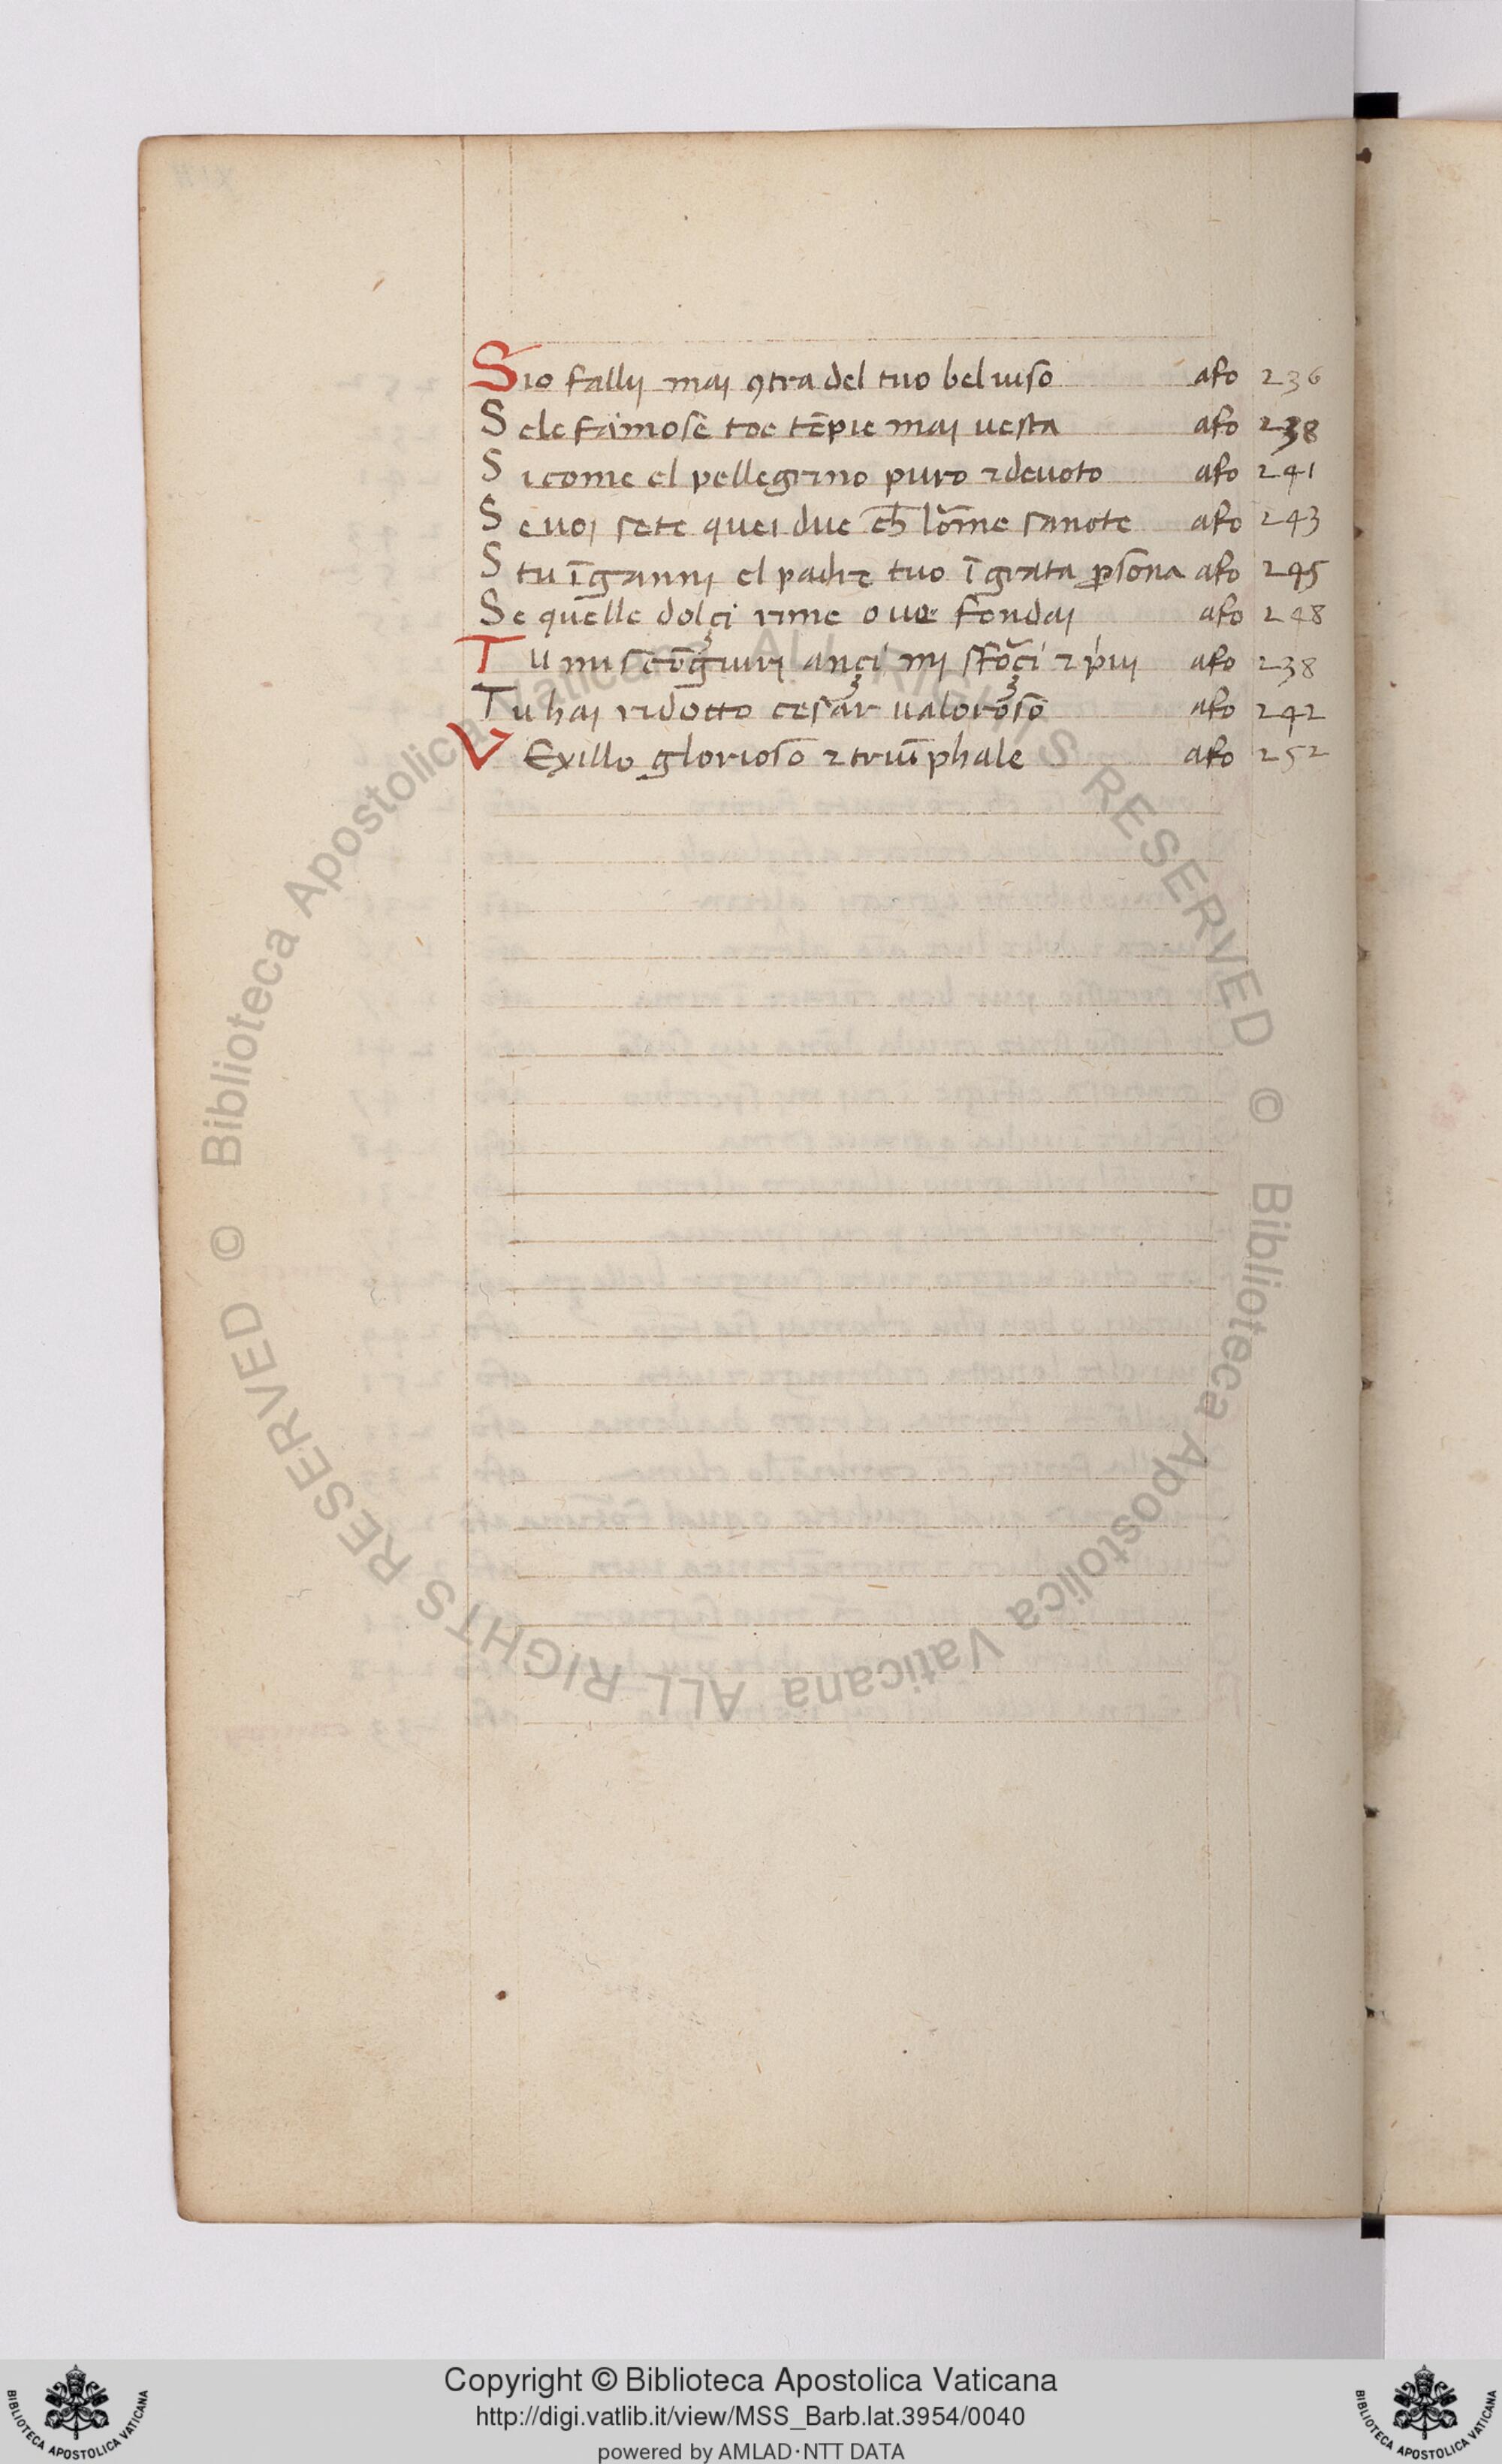 Sio fallij maj ꝯtra del tuo bel uiso afo 236
Se le famose toe tēpie maj uesta afo 238
Si come el pellegrino puro ⁊ deuoto afo 241
Se uoj sete quei due ch̄ lōme sanote afo 243
S tu īgannj el padre tuo ī grata ꝑsona afo 245
Se quelle dolçi rime oue fondaj afo 248
Tu mi ançi mj ⁊ afo 238
Tu haj ridotto cesar ualoroso afo 242
VExillo glorioso ⁊ triūphale afo 252
© Biblioteca Apostolica Vaticana ALL RIGHTS RESERVED © Biblioteca Apostolica Vaticana ALL RIGHTS RESERVED
BIBLIOTECA APOSTOLICA VATICANA
Copyright © Biblioteca Apostolica Vaticana
http://digi.vatlib.it/view/MSS_Barb.lat.3954/0040
powered by AMLAD·NTT DATA
BIBLIOTECA APOSTOLICA VATICANA